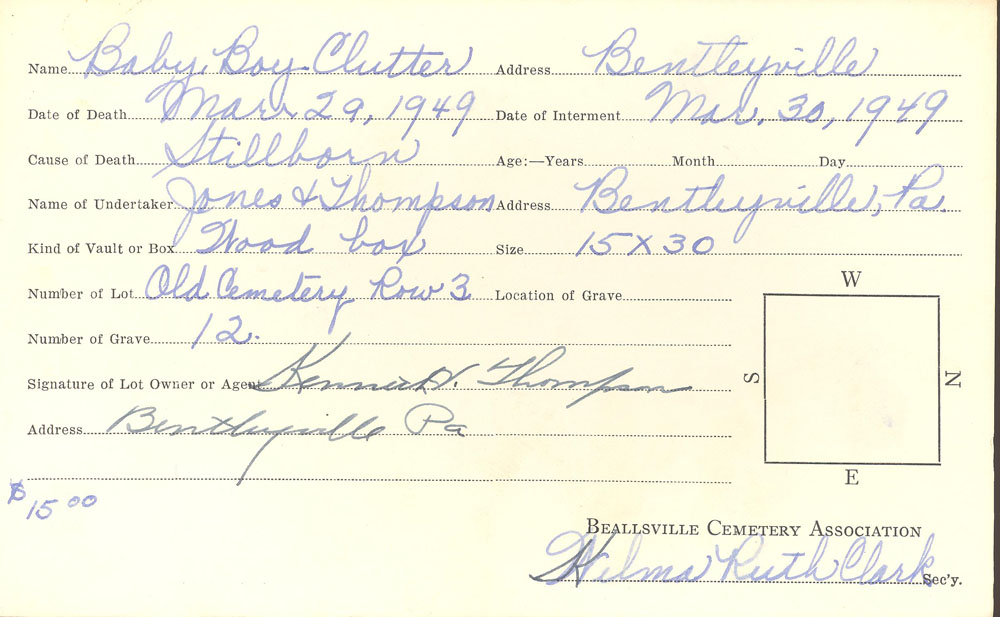 Name Baby Boy Clutter Address Bentleyville
Date of Death Mar. 29, 1949 Date of Interment Mar. 30, 1949
Cause of Death Stillborn Age:—Years Month Day
Name of Undertaker Jones & Thompson Address Bentleyville, Pa.
Kind of Vault or Box Wood box Size 15 X 30
Number of Lot Old Cemetery Row 3 Location of Grave
Number of Grave 12.
W
S
N
E
Signature of Lot Owner or Agent Kenneth V. Thompson
Address Bentleyville Pa
$15 00
BEALLSVILLE CEMETERY ASSOCIATION
Wilma Ruth Clark Sec'y.